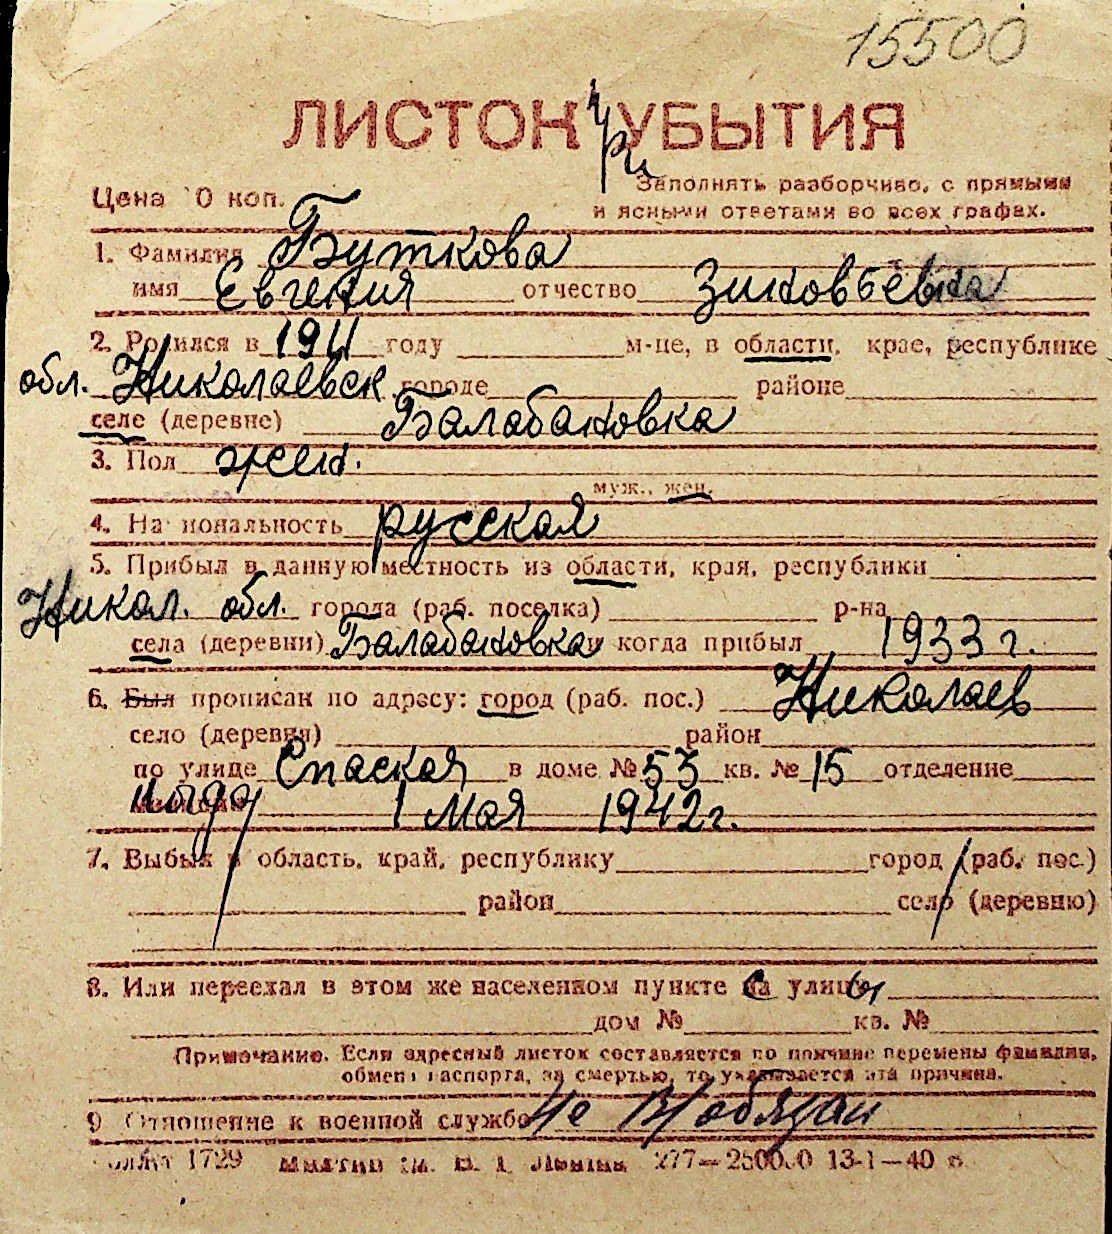 15500
ЛИСТОК при УБЫТИЯ
Цена 10 коп.
Заполнять разборчиво, с прямыми
и ясными ответами во всех графах.
1. Фамилия Буткова
имя Евгения отчество Зиновьевна
2. Родился в 1911 году м-це, в области, крае, республике
обл. Николаевск городе районе
селе (деревне) Балабановка
3. Пол жен.
муж., жен.
4. Национальность русская
5. Прибыл в данную местность из области, края, республики
Никол. обл. города (раб. поселка) р-на
села (деревни) Балабановка и когда прибыл 1933 г.
6. Был прописан по адресу: город (раб. пос.) Николаев
село (деревня) район
по улице Спаская в доме № 53 кв. № 15 отделение
милиции 1 мая 1942 г.
7. Выбыл в область, край, республику город (раб. пос.)
район село (деревню)
8. Или переехал в этом же населенном пункте с улицы
дом № кв. №
Примечание. Если адресный листок составляется по причине перемены фамилии,
обмена паспорта, за смертью, то указывается эта причина.
9 Отношение к военной службе Не В/обязан
1729 277—250000 13-1—40